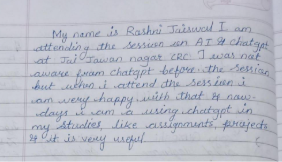 My name is Rashni Jaiswal I am
attending the session on AI & chatgpt
at Jai Jawan nagar CRC I was not
aware from chatgpt before the session
but when i attend the session i
am very happy with that & now
days i am a using chatgpt in
my studies like assignments, projects
& it is very useful